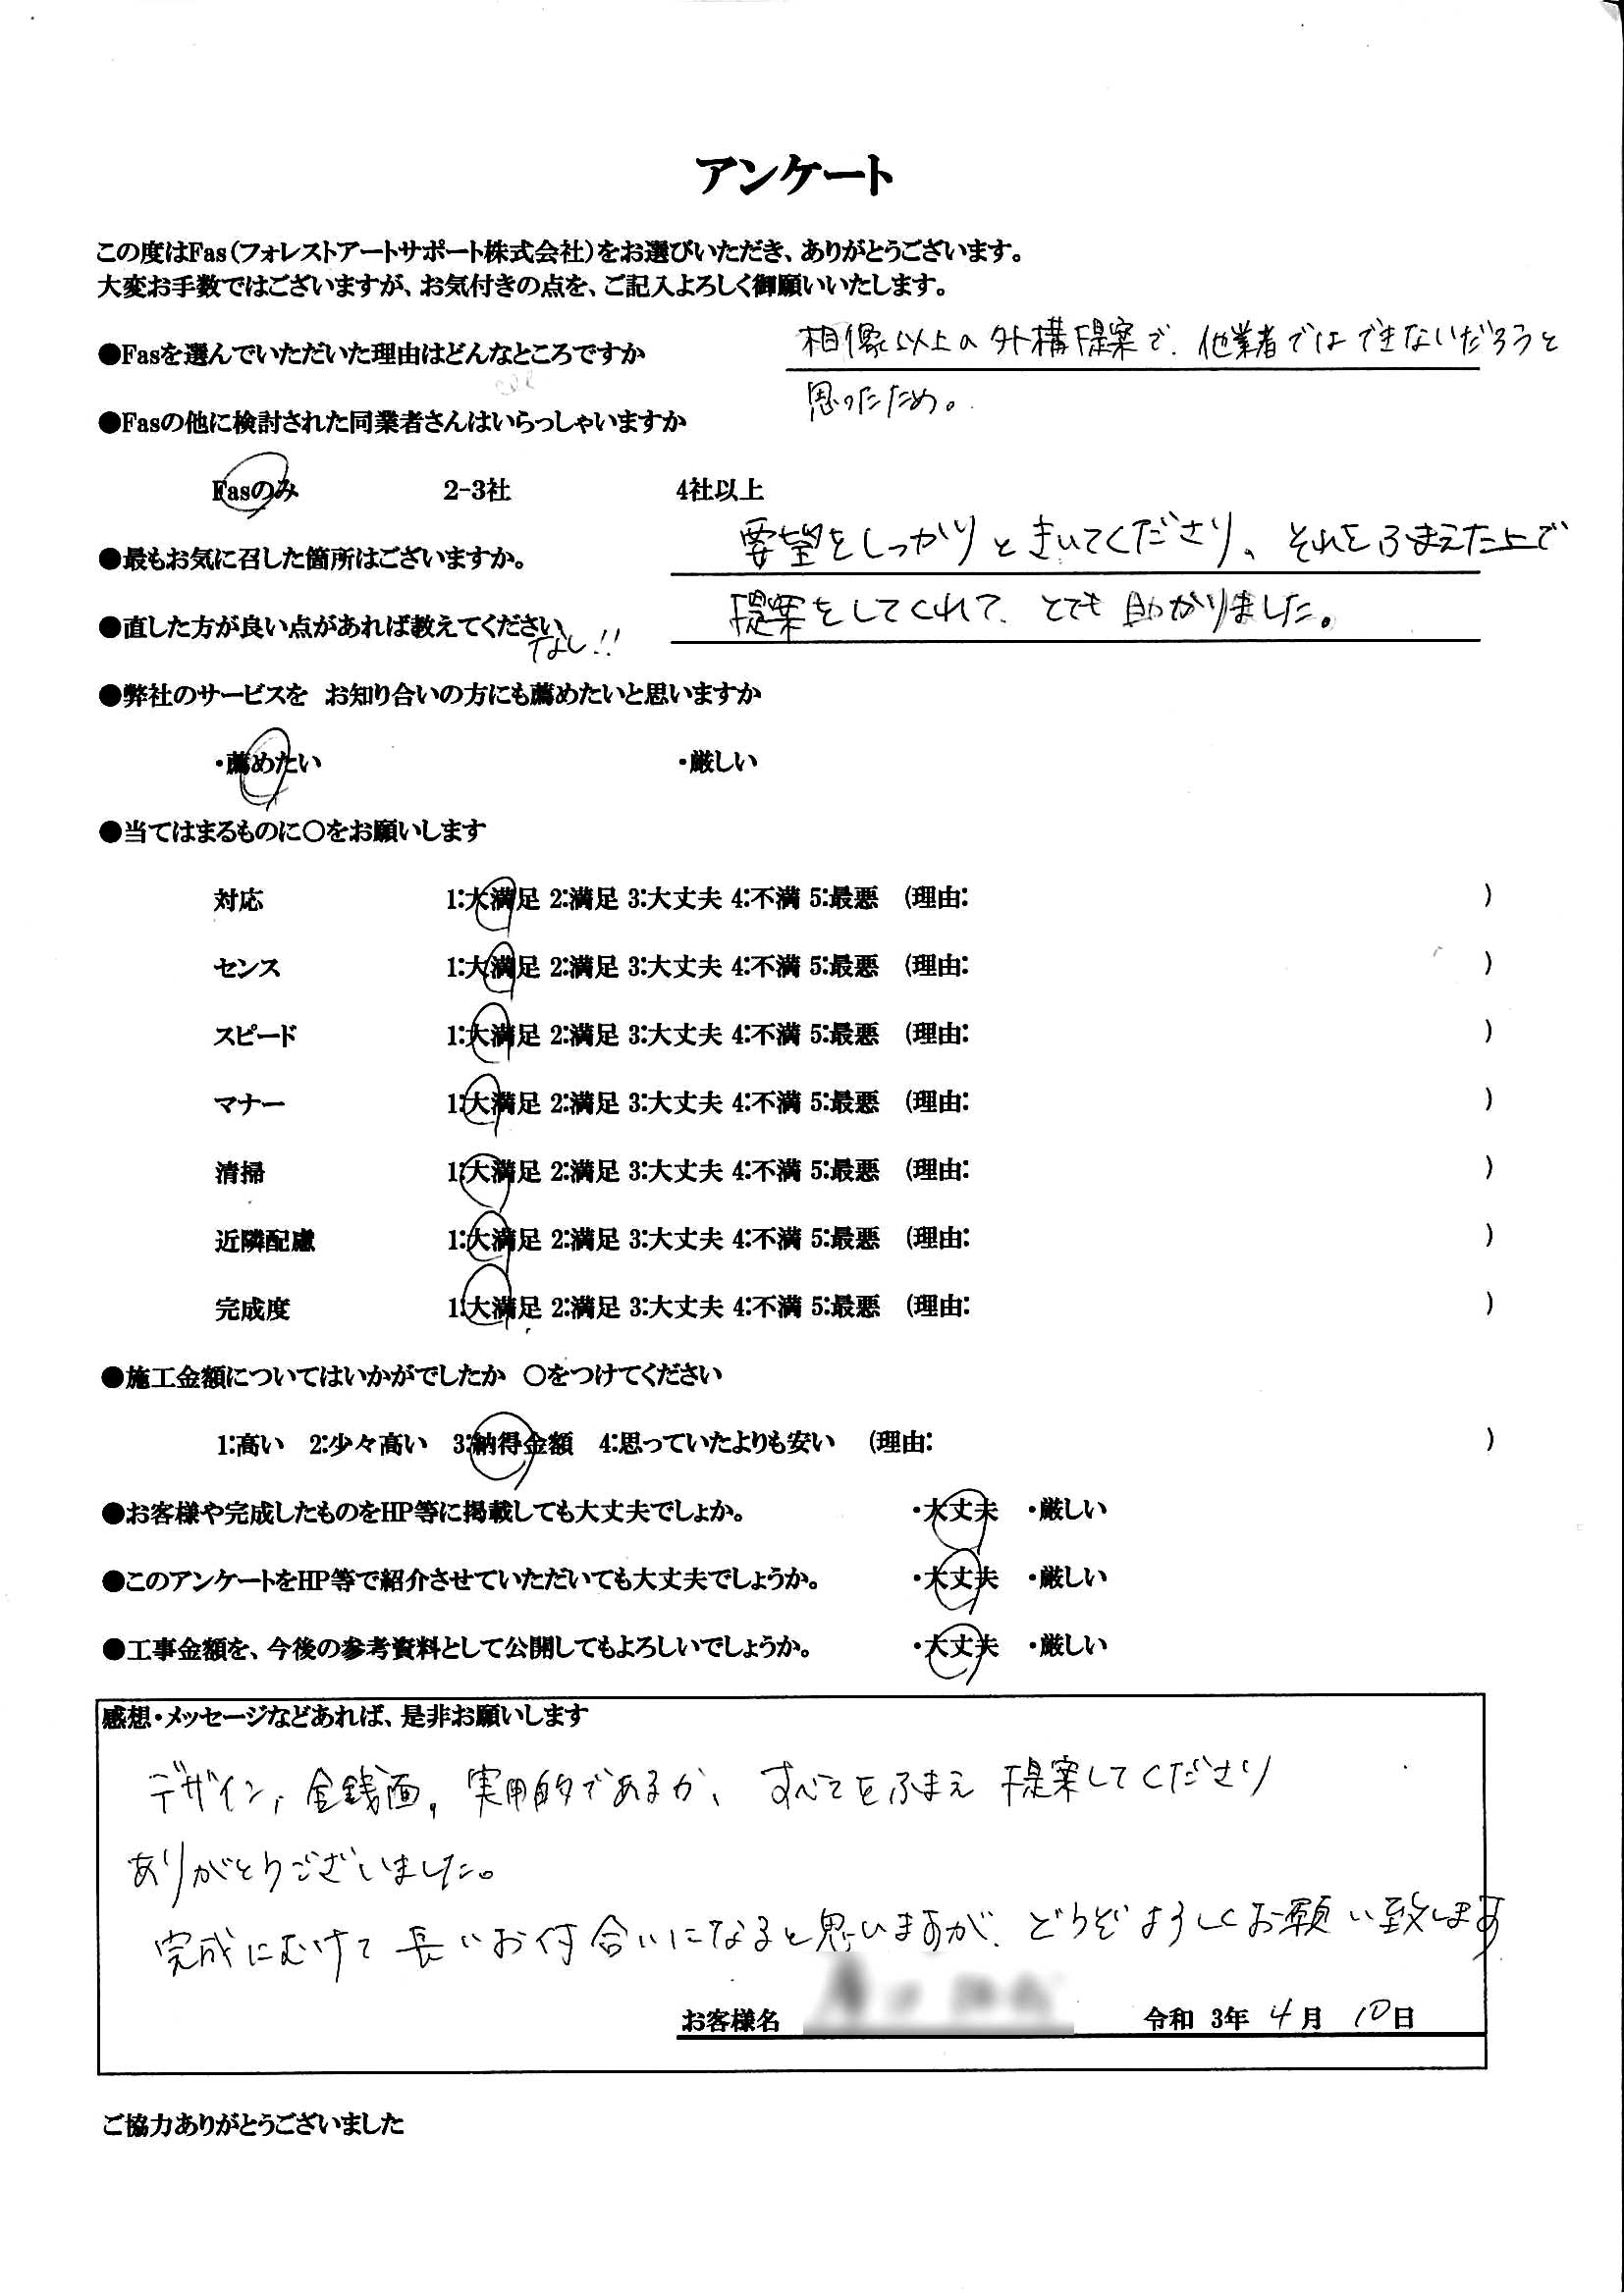 アンケート
この度はFas(フォレストアートサポート株式会社)をお選びいただき、ありがとうございます。
大変お手数ではございますが、お気付きの点を、ご記入よろしく御願いいたします。
●Fasを選んでいただいた理由はどんなところですか 相像以上の外構提案で、他業者ではできないだろうと
思ったため。
●Fasの他に検討された同業者さんはいらっしゃいますか
Fasのみ 2-3社 4社以上
●最もお気に召した箇所はございますか。 要望をしっかりときいてくださり、それをふまえた上で
提案をしてくれて、とても助かりました。
●直した方が良い点があれば教えてください、 なし!!
●弊社のサービスを お知り合いの方にも薦めたいと思いますか
・薦めたい ・厳しい
●当てはまるものに〇をお願いします
対応 1:大満足 2:満足 3:大丈夫 4:不満 5:最悪 (理由: )
センス 1:大満足 2:満足 3:大丈夫 4:不満 5:最悪 (理由: )
スピード 1:大満足 2:満足 3:大丈夫 4:不満 5:最悪 (理由: )
マナー 1:大満足 2:満足 3:大丈夫 4:不満 5:最悪 (理由: )
清掃 1:大満足 2:満足 3:大丈夫 4:不満 5:最悪 (理由: )
近隣配慮 1:大満足 2:満足 3:大丈夫 4:不満 5:最悪 (理由: )
完成度 1:大満足 2:満足 3:大丈夫 4:不満 5:最悪 (理由: )
●施工金額についてはいかがでしたか 〇をつけてください
1:高い 2:少々高い 3:納得金額 4:思っていたよりも安い (理由: )
●お客様や完成したものをHP等に掲載しても大丈夫でしょか。 ・大丈夫 ・厳しい
●このアンケートをHP等で紹介させていただいても大丈夫でしょうか。 ・大丈夫 ・厳しい
●工事金額を、今後の参考資料として公開してもよろしいでしょうか。 ・大丈夫 ・厳しい
感想・メッセージなどあれば、是非お願いします
デザイン、金銭面、実用的であるか、すべてをふまえ提案してくださり
ありがとうございました。
完成にむけて長いお付合いになると思いますが、どうぞよろしくお願い致します
お客様名 令和 3年 4月 10日
ご協力ありがとうございました